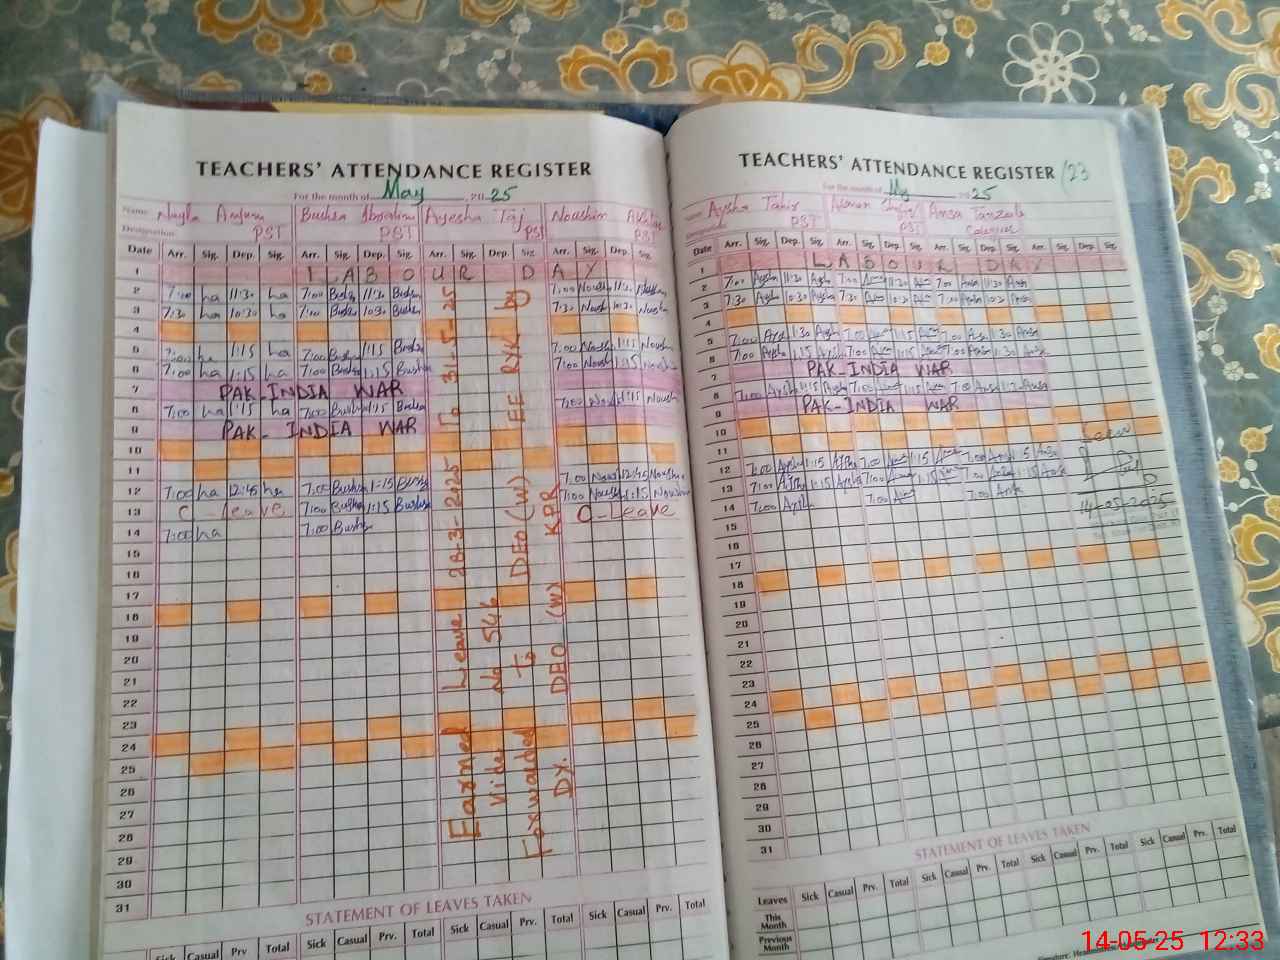 TEACHERS' ATTENDANCE REGISTER
For the month of May 2025
Name Nayla Anjum Bushra Ibrahim Ayesha Taj Noushin Akhtar
Designation PST PST PST PST
Date Arr. Sig. Dep. Sig. Arr. Sig. Dep. Sig. Arr. Sig. Dep. Sig. Arr. Sig. Dep. Sig.
1 LABOUR DAY
2 7:00 ha 11:30 ha 7:00 Bushra 11:30 Bushra 7:00 Noush 11:30 Noushin
3 7:30 ha 10:30 ha 7:00 Bushra 10:30 Bushra 7:30 Noush 10:30 Noush
4
5 7:00 ha 1:15 ha 7:00 Bushra 1:15 Bushra 7:00 Noush 1:15 Noush
6 7:00 ha 1:15 ha 7:00 Bushra 1:15 Bushra 7:00 Noush 1:15 Noush
7 PAK-INDIA WAR
8 7:00 ha 1:15 ha 7:00 Bush 1:15 Bushra 7:00 Noush 1:15 Noush
9 PAK-INDIA WAR
10
11
12 7:00 ha 12:45 ha 7:00 Bushra 1:15 Bushra 7:00 Noush 12:45 Noushin
13 C leave 7:00 Bushra 1:15 Bushra 7:00 Noush 1:15 Noushin
14 7:00 ha 7:00 Bushra C-Leave
15
16
17
18
19
20
21
22
23
24
25
26
27
28
29
30
31
Earned Leave 28-3-2025 To 31-5-25
Vide No 546 DEO (W) EE RYK by
Forwarded To
Dy. DEO (W) KPR
STATEMENT OF LEAVES TAKEN
Sick Casual Prv Total Sick Casual Prv. Total Sick Casual Prv. Total Sick Casual Prv. Total
TEACHERS' ATTENDANCE REGISTER 123
For the month of My 2025
Name Aysha Tahir Ansa Tanzala
Designation PST PST
Date Arr. Sig. Dep. Sig. Arr. Sig. Dep. Sig. Arr. Sig. Dep. Sig. Arr. Sig. Dep. Sig.
1 LABOUR DAY
2 7:00 Aysha 11:30 Aysha 7:00 11:30 7:00 Ansa 11:30 Ansa
3 7:30 Aysha 10:30 Aysha 7:30 10:30 7:30 Ansa 10:30 Ansa
4
5 7:00 Aysh 1:30 Aysh 7:00 1:15 7:00 Ansa 1:30 Ansa
6 7:00 Aysha 1:15 Aysh 7:00 1:15 7:00 Ansa 1:30 Ansa
7 PAK-INDIA WAR
8 7:00 Aysh 1:15 Aysha 7:00 1:15 7:00 Ansa Ansa
9 PAK-INDIA WAR
10
11
12 7:00 Aysha 1:15 7:00 1:15 7:00 Ansa Ansa
13 7:00 Aysh 1:15 Aysha 7:00 1:15 7:00 Ansa 1:15 Ansa
14 7:00 Aysh 7:00 7:00 Ansa
Seen
14-05-2025
15
16
17
18
19
20
21
22
23
24
25
26
27
28
29
30
31
STATEMENT OF LEAVES TAKEN
Leaves Sick Casual Prv. Total Sick Casual Prv. Total Sick Casual Prv. Total Sick Casual Prv. Total
This Month
Previous Month
14-05-25 12:33